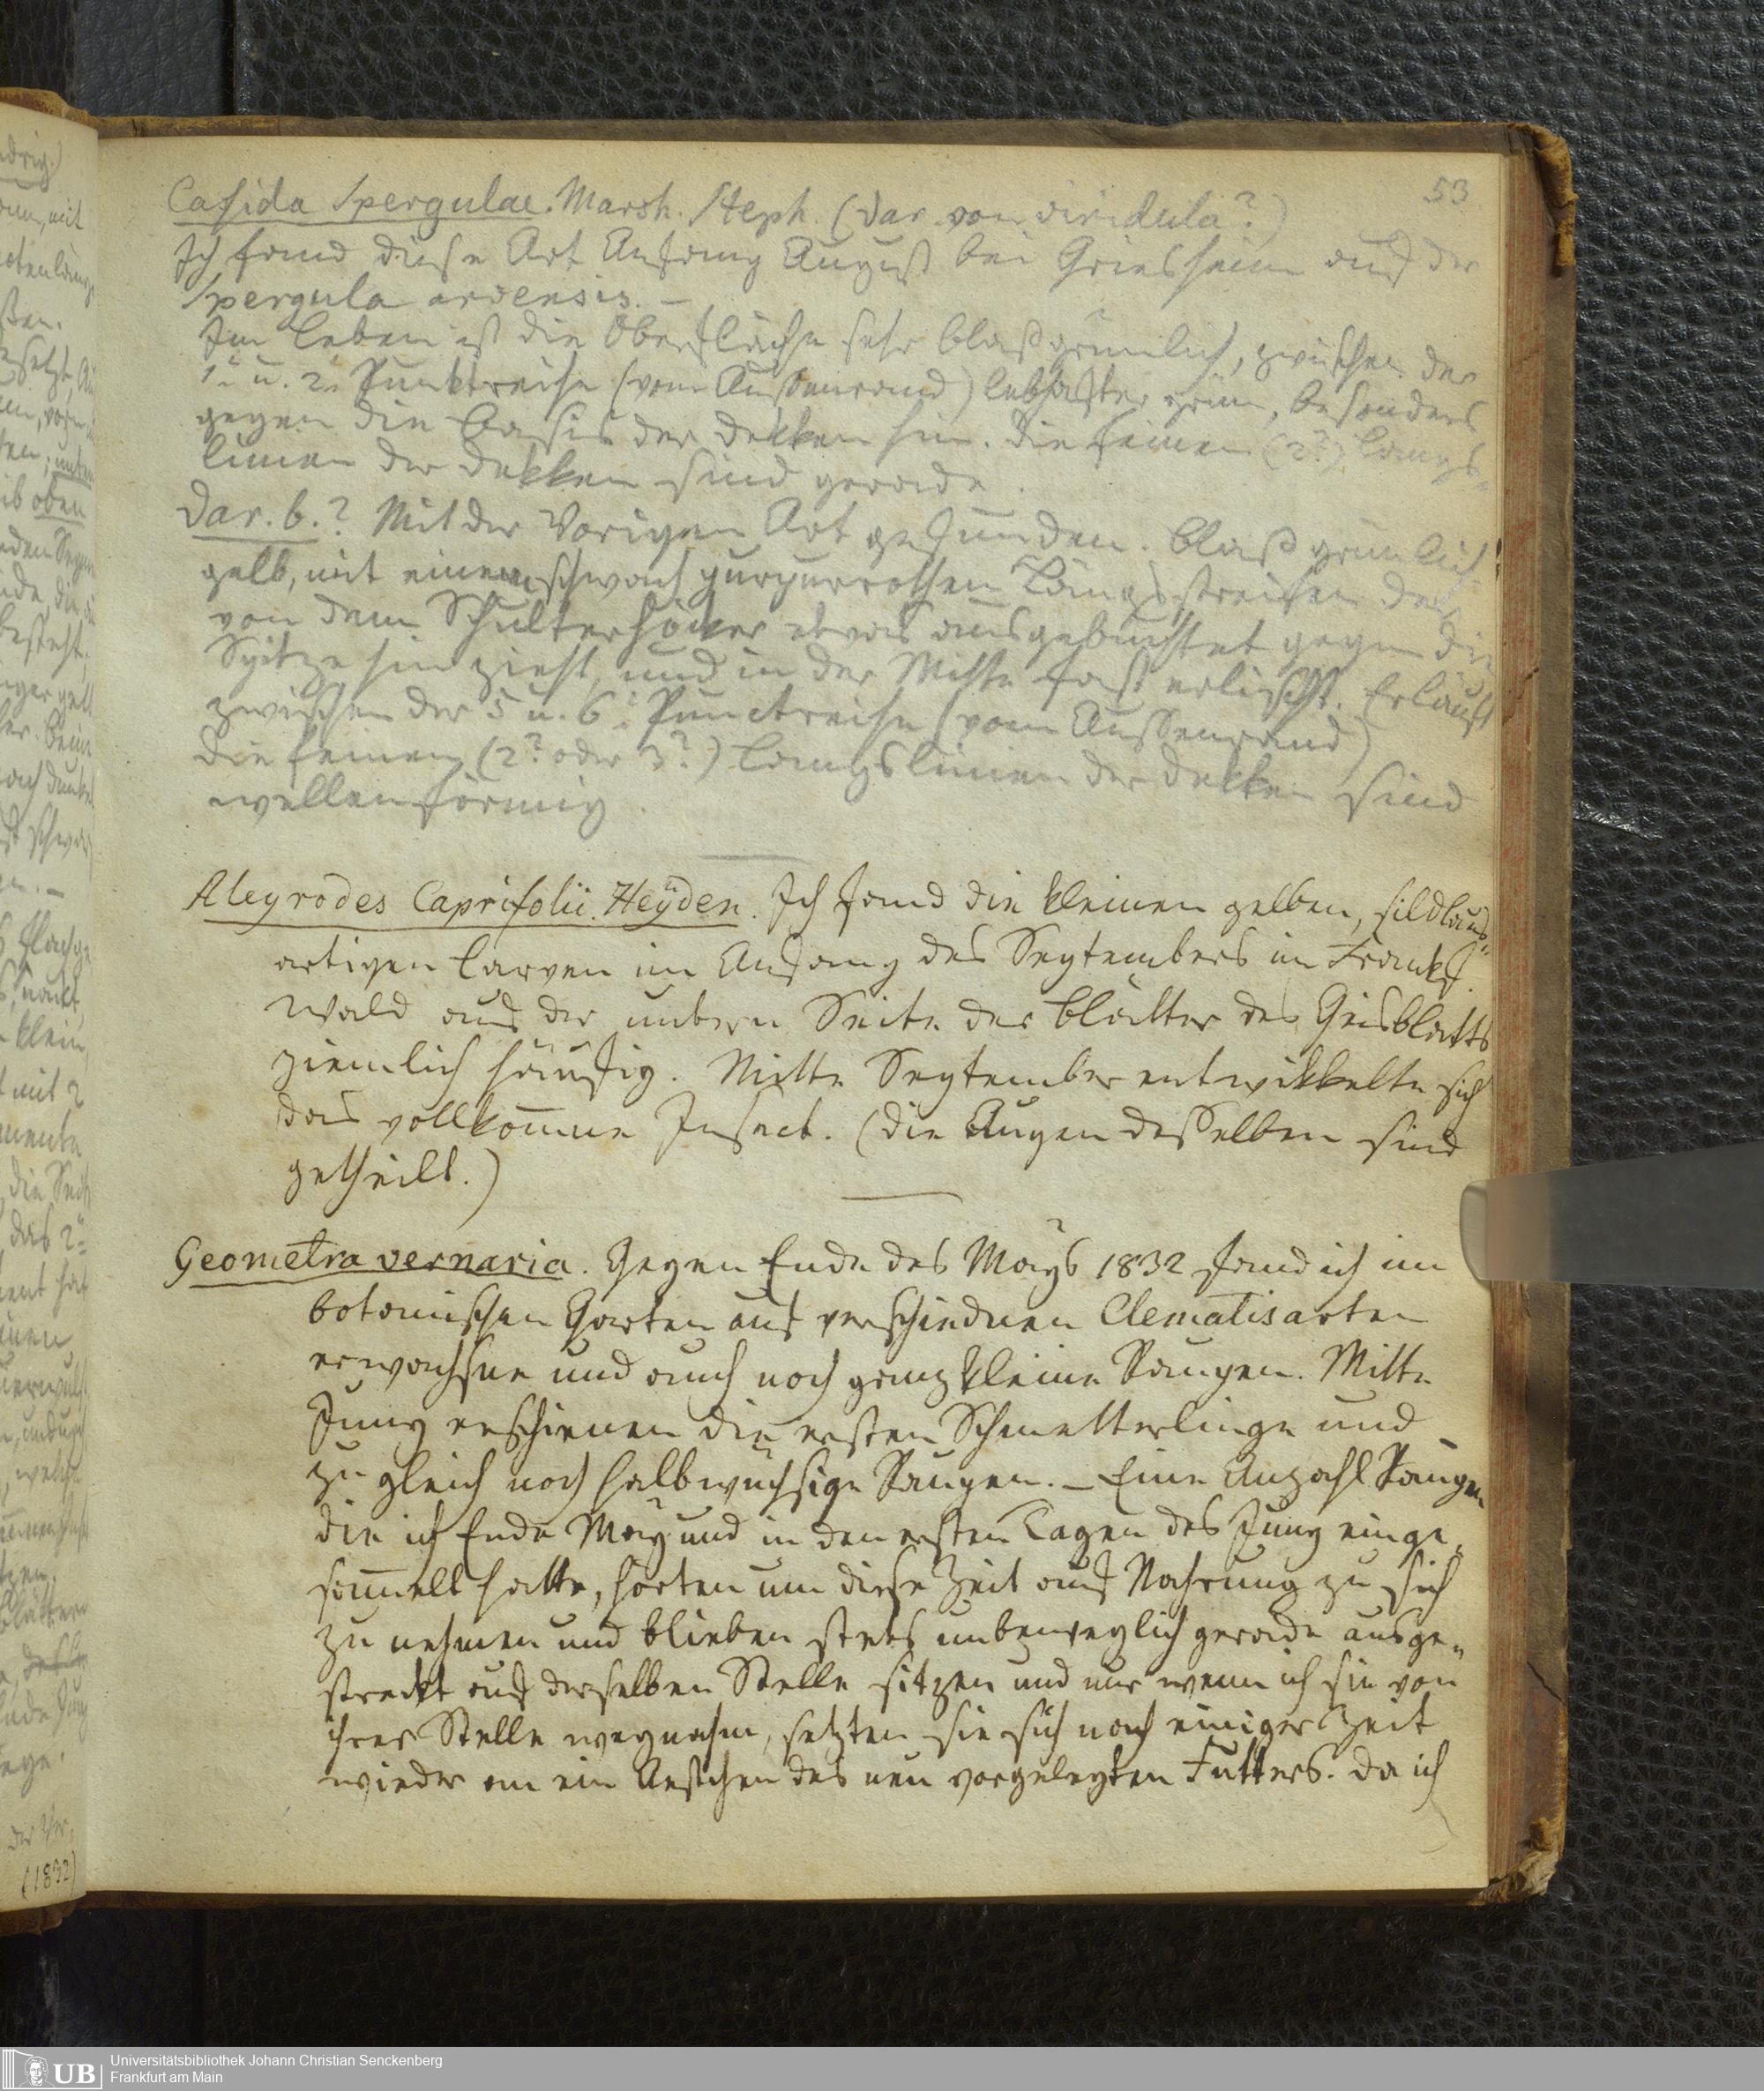 53
Casida Spergulae. Marsh. Steph. (Var. von viridula?)
Ich fand diese Art Anfang August bei Griesheim auf der
Spergula arvensis. –
Im Leben ist die Oberfläche sehr blaßgrünlich, zwischen der
1n u. 2n Punktreihe (vom Außenrand) lebhafter grün, besonders
gegen die Basis der Dekken hin. Die feinen (2?) Längs-
linien der Dekken sind gerade.
Var. b.? Mit der Vorigen Art gefunden. Blaß grünlich-
gelb, mit einem schwach purpurrothen Längsstreifen der
von dem Schulterhöcker etwas ausgebuchtet gegen die
Spitze hin zieht, und in der Mitte fast erlischt. Er läuft
zwischen der 5 u. 6n Punctreihe (vom Außenrand)
Die feinen (2? oder 3?) Längslinien der Dekken sind
wellenförmig.
Aleyrodes Caprifolii. Heÿden. Ich fand die kleinen gelben, sildlaus-
artigen Larven im Anfang des Septembers im Frankf.
Wald auf der untern Seite der Blätter des Geisblatts
ziemlich häufig. Mitte September entwikkelte sich
das vollkom̅ne Insect. (Die Augen desselben sind
getheilt.)
Geometra vernaria. Gegen Ende des Mays 1832 fand ich im
botanischen Garten auf verschiednen Clematisarten
erwachsne und auch noch ganz kleine Raupen. Mitte
Juny erschienen die ersten Schmetterlinge und
zu gleich noch halbwüchsige Raupen. – Eine Anzahl Raupen
die ich Ende May und in den ersten Tagen des Juny einge-
sam̅elt hatte, hörten um diese Zeit auf Nahrung zu sich
zu nehmen und blieben stets unbeweglich gerade ausge-
streckt auf derselben Stelle sitzen und nur wenn ich sie von
ihrer Stelle wegnahm, setzten sie sich nach einiger Zeit
wieder an ein Aestchen des neu vorgelegten Futters. Da ich
(1832)
UB
Universitätsbibliothek Johann Christian Senckenberg
Frankfurt am Main